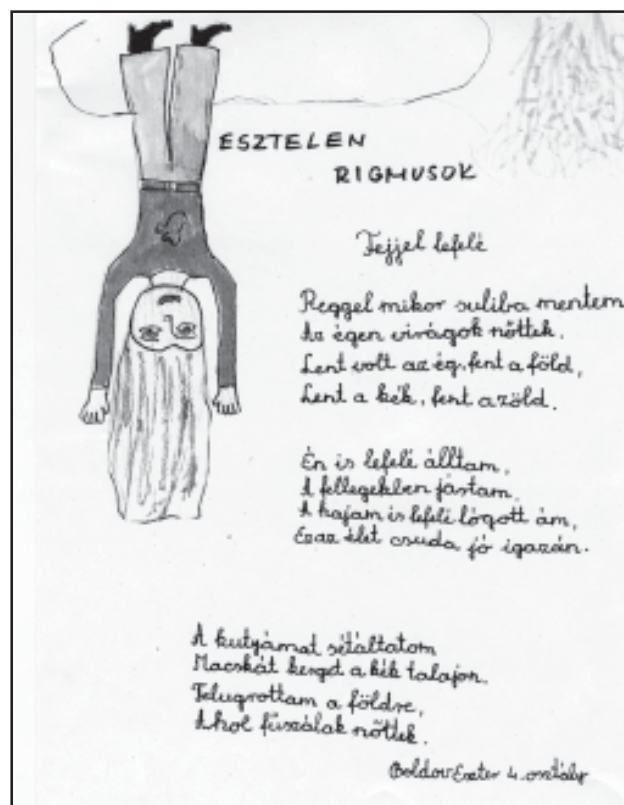 ESZTELEN
RIGMUSOK
Fejjel lefelé
Reggel mikor suliba mentem
Az égen virágok nőttek.
Lent volt az ég, fent a föld,
Lent a kék, fent a zöld.
Én is lefelé álltam,
A fellegekben jártam.
A hajam is lefelé lógott ám,
Ez az élet csuda jó igazán.
A kutyámat sétáltatom
Macskát kerget a kék talajon.
Felugrottam a földre,
Ahol fűszálak nőttek.
Boldov Eszter 4. osztály